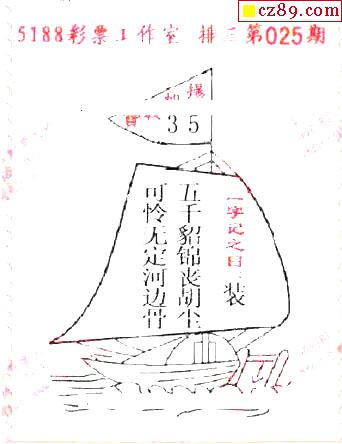 cz89.com
5188彩票工作室 排三第025期
35
一字记之曰:装
五千貂锦丧胡尘
可怜无定河边骨